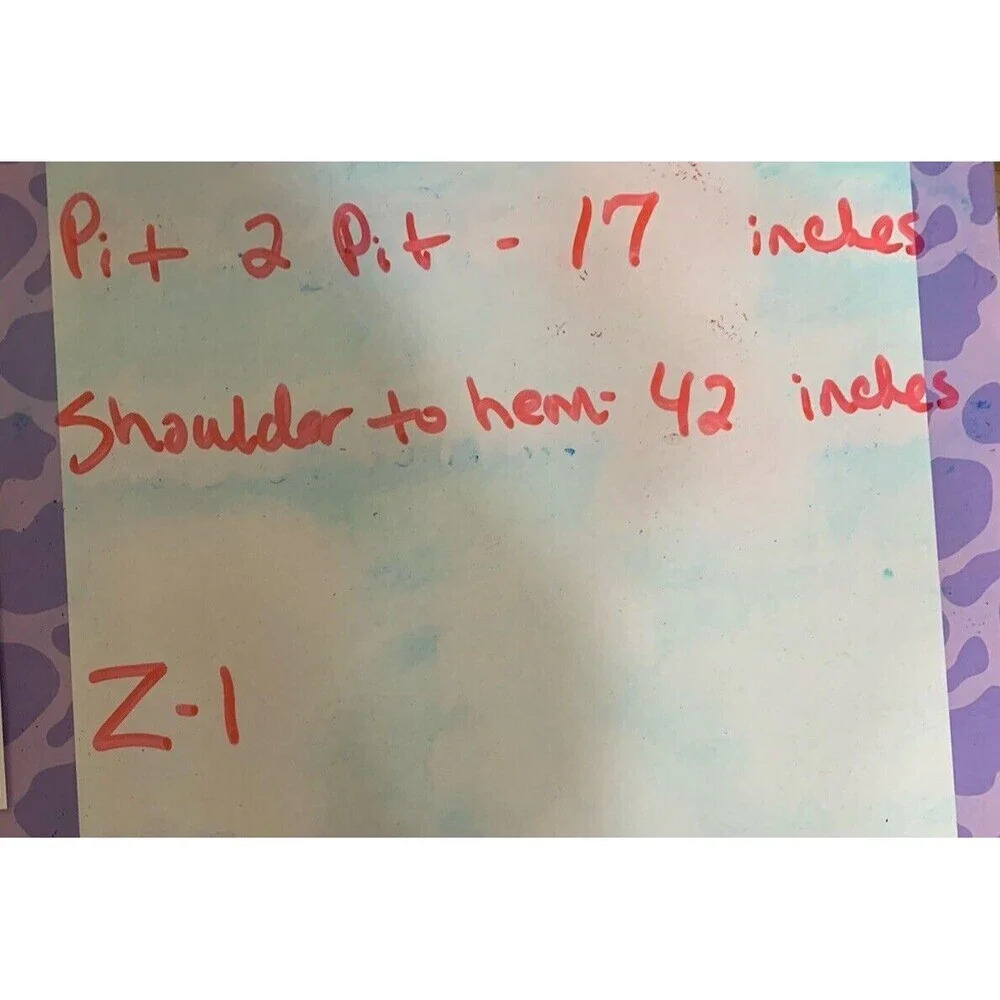 Pit 2 Pit - 17 inches
Shoulder to hem- 42 inches
Z-1